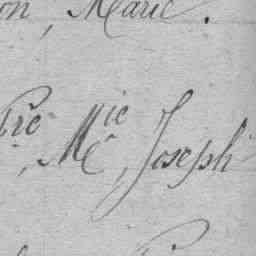 on, Marie.
Pre, Mie, Joseph